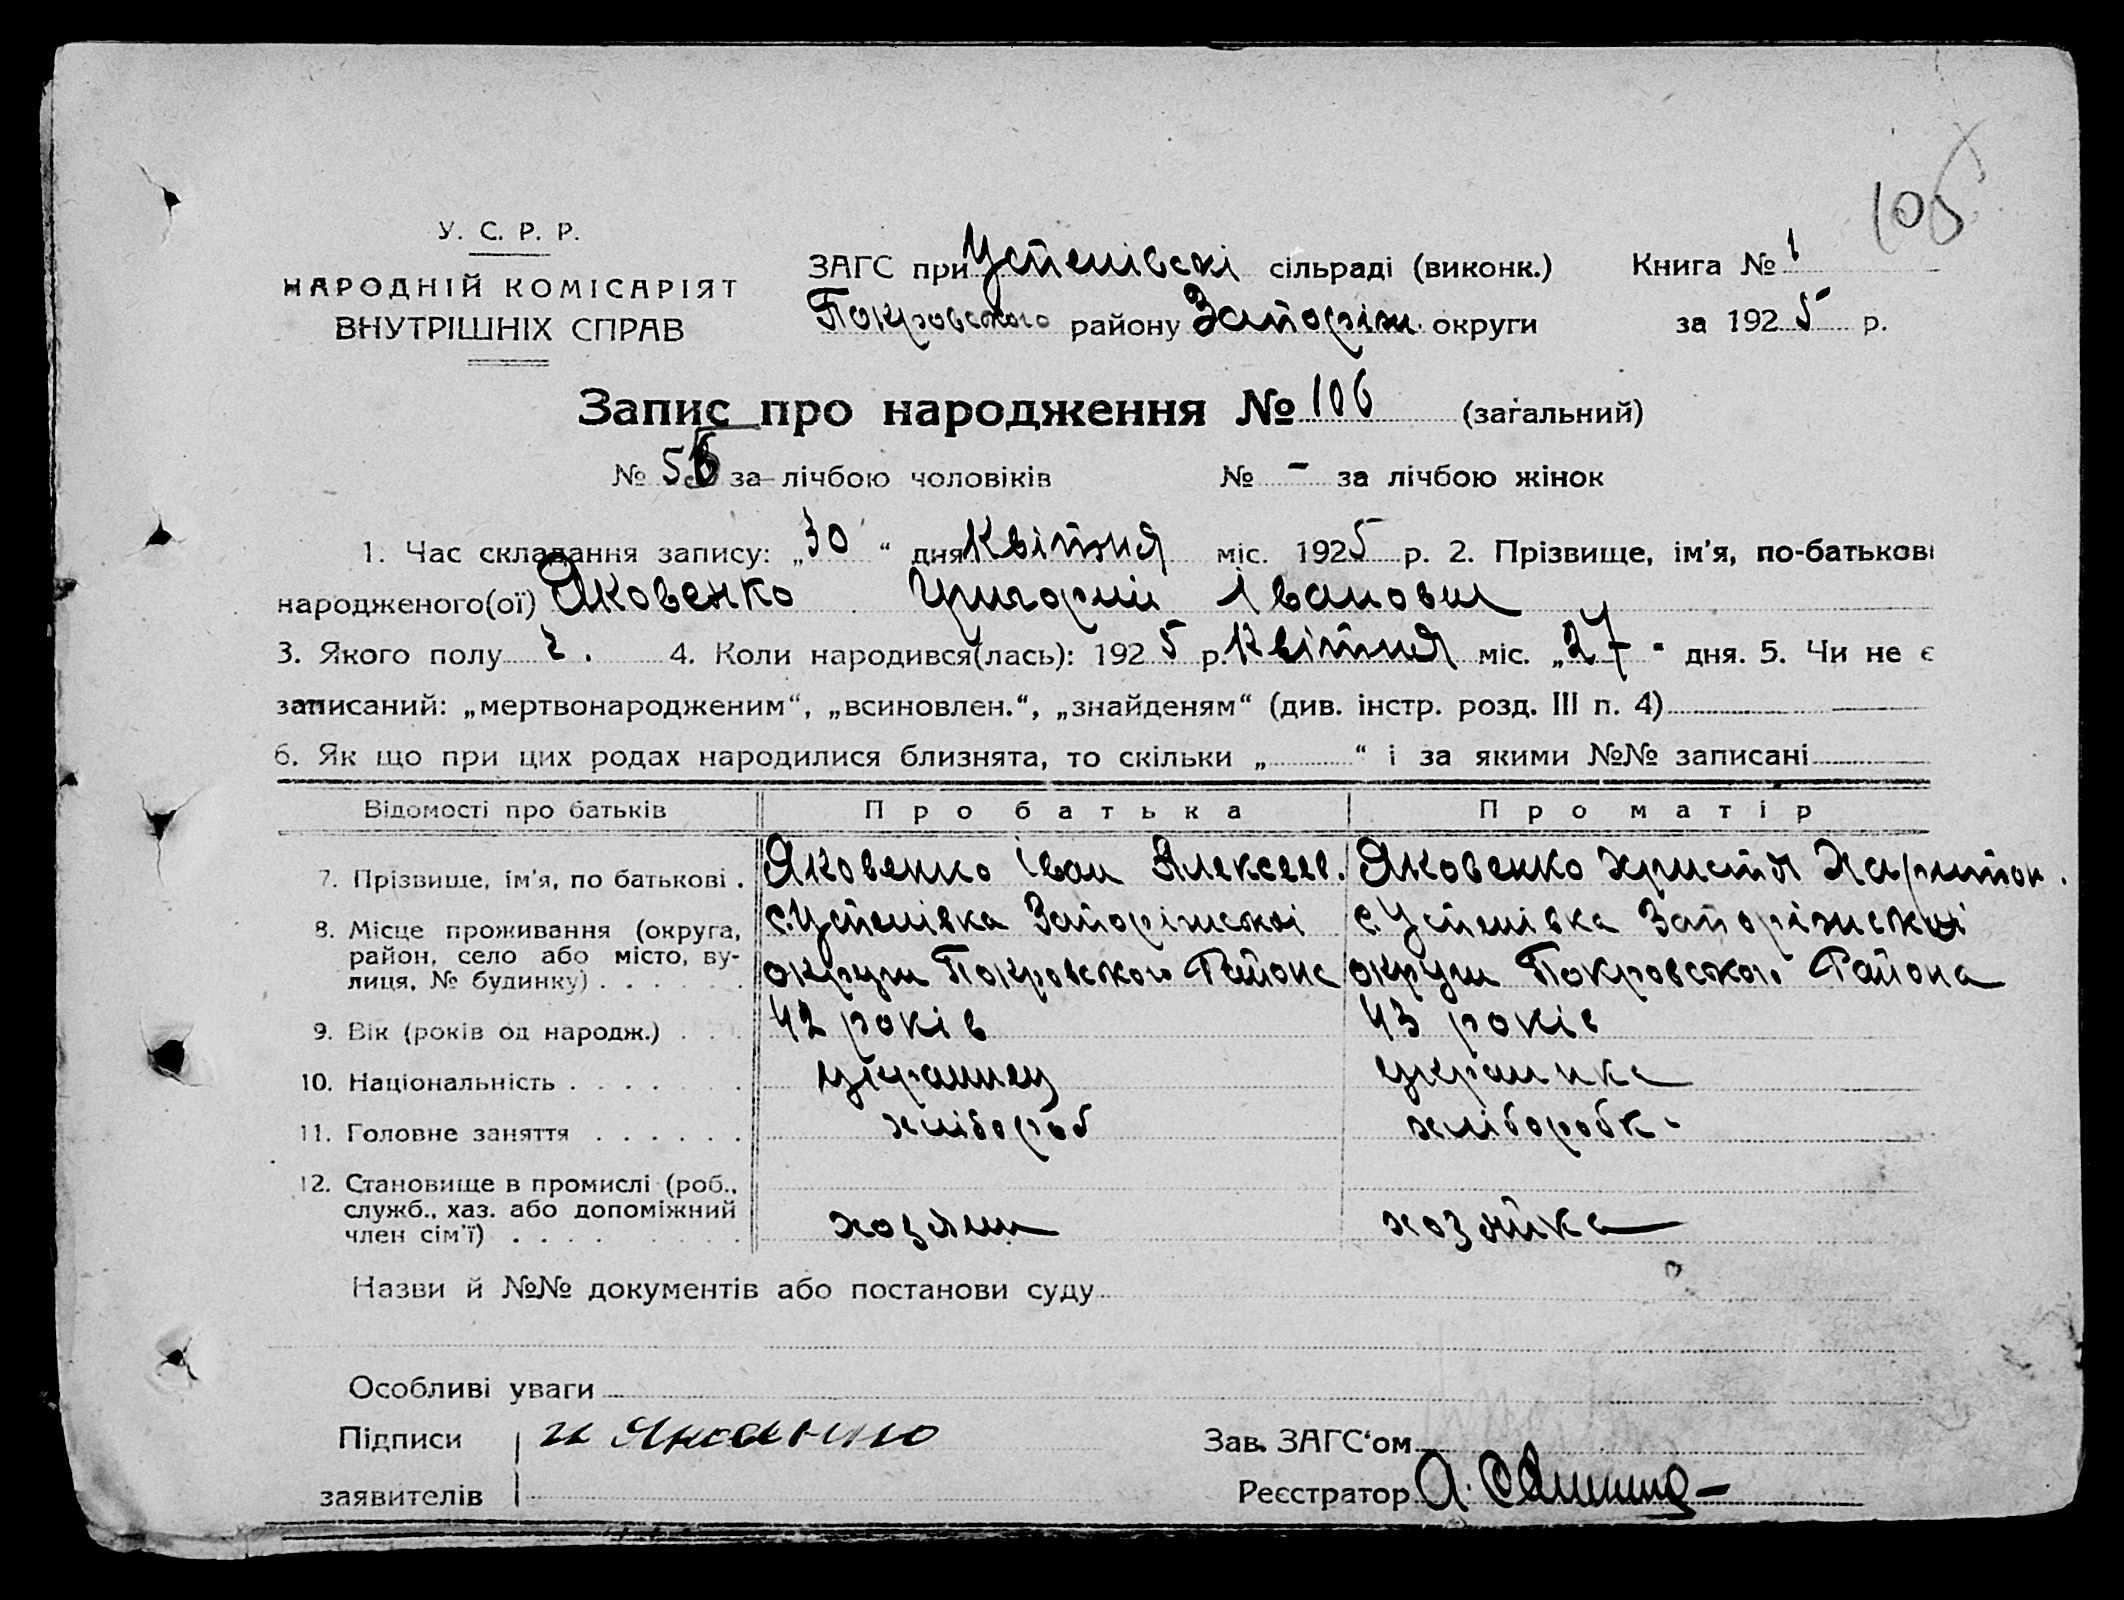 105
У. С. Р. Р.
НАРОДНІЙ КОМІСАРІЯТ
ВНУТРІШНІХ СПРАВ
ЗАГС при Успенівскі сільраді (виконк.) Книга № 1
Покровського району Запоріж. округи за 1925 р.
Запис про народження № 106 (загальний)
№ 56 за лічбою чоловіків № - за лічбою жінок
1. Час складання запису: „30“ дня Квітня міс. 1925 р. 2. Прізвище, ім'я, по-батькові
народженого(ої) Яковенко Григорий Іванович
3. Якого полу ч. 4. Коли народився(лась): 1925 р. Квітня міс. „27“ дня. 5. Чи не є
записаний: „мертвонародженим“, „всиновлен.“, „знайденям“ (див. інстр. розд. III п. 4)
6. Як що при цих родах народилися близнята, то скільки „ “ і за якими №№ записані
Відомості про батьків Про батька Про матір
7. Прізвище, ім'я, по батькові . Яковенко Іван Алексеев. Яковенко Христя Харитон.
8. Місце проживання (округа, район, село або місто, вулиця, № будинку) с. Успенівка Запоріжскоі округи Покровського Району с. Успенівка Запоріжскоі округи Покровського Района
9. Вік (років од народж.) 42 років 43 років
10. Національність украинец украинка
11. Головне заняття хлібороб хліборобк
12. Становище в промислі (роб., служб., хаз. або допоміжний член сім'ї) хозяин хозяйка
Назви й №№ документів або постанови суду
Особливі уваги
Підписи и Яковенко Зав. ЗАГС‘ом
заявителів Реєстратор А.